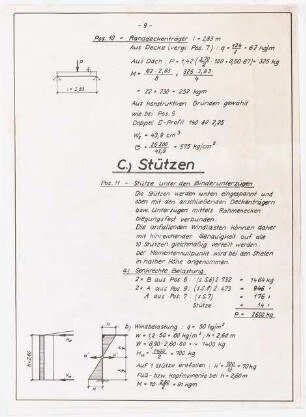 - 9 -
Pos. 10 - Randdeckenträger l = 2,85 m
Aus Decke (vergl. Pos. 7) : q = 134/2 = 67 kg/m
P
l = 2,85
Aus Dach : P = 1,42 ( · 100 + 0,50 · 67) = 325 kg
M = 67 · 2,85²/8 + 325 · 2,85/4
= 22 + 230 = 252 kgm
Aus konstruktiven Gründen gewählt
wie bei Pos. 9
Doppel C-Profil 140 · 80 · 2,25
W = 43,9 cm³
σ = 25 200/43,9 = 575 kg/cm²
C.) Stützen
Pos. 11 - Stütze unter den Binderunterzügen
Die Stützen werden unten eingespannt und
oben mit den anschließenden Deckenträgern
bzw. Unterzügen mittels Rahmenecken
biegungsfest verbunden.
Die anfallenden Windlasten können daher
mit hinreichender Genauigkeit auf alle
10 Stützen gleichmäßig verteilt werden.
Der Momentennullpunkt wird bei den Stielen
in halber Höhe angenommen.
a) Senkrechte Belastung
2 × B aus Pos. 6 : (s.S.6) 2 · 732 = 1464 kg
2 × A aus Pos. 9 : (s.S.8) 2 · 473 = 946 "
A aus Pos. 7 : (s.S.7) = 176 "
Stütze = 14 "
P = 2600 kg
b) Windbelastung : q = 50 kg/m²
w = 1,2 · 50 = 60 kg/m² ; h = 2,60 m
= 1400 kg
= 700 kg
Auf 1 Stütze entfallen : H = 700/10 = 70 kg
Fuß- bzw. Kopfmomente bei h = 2,60 m
M = 70 · 2,60/2 = 91 kgm
h = 2,60
H
M